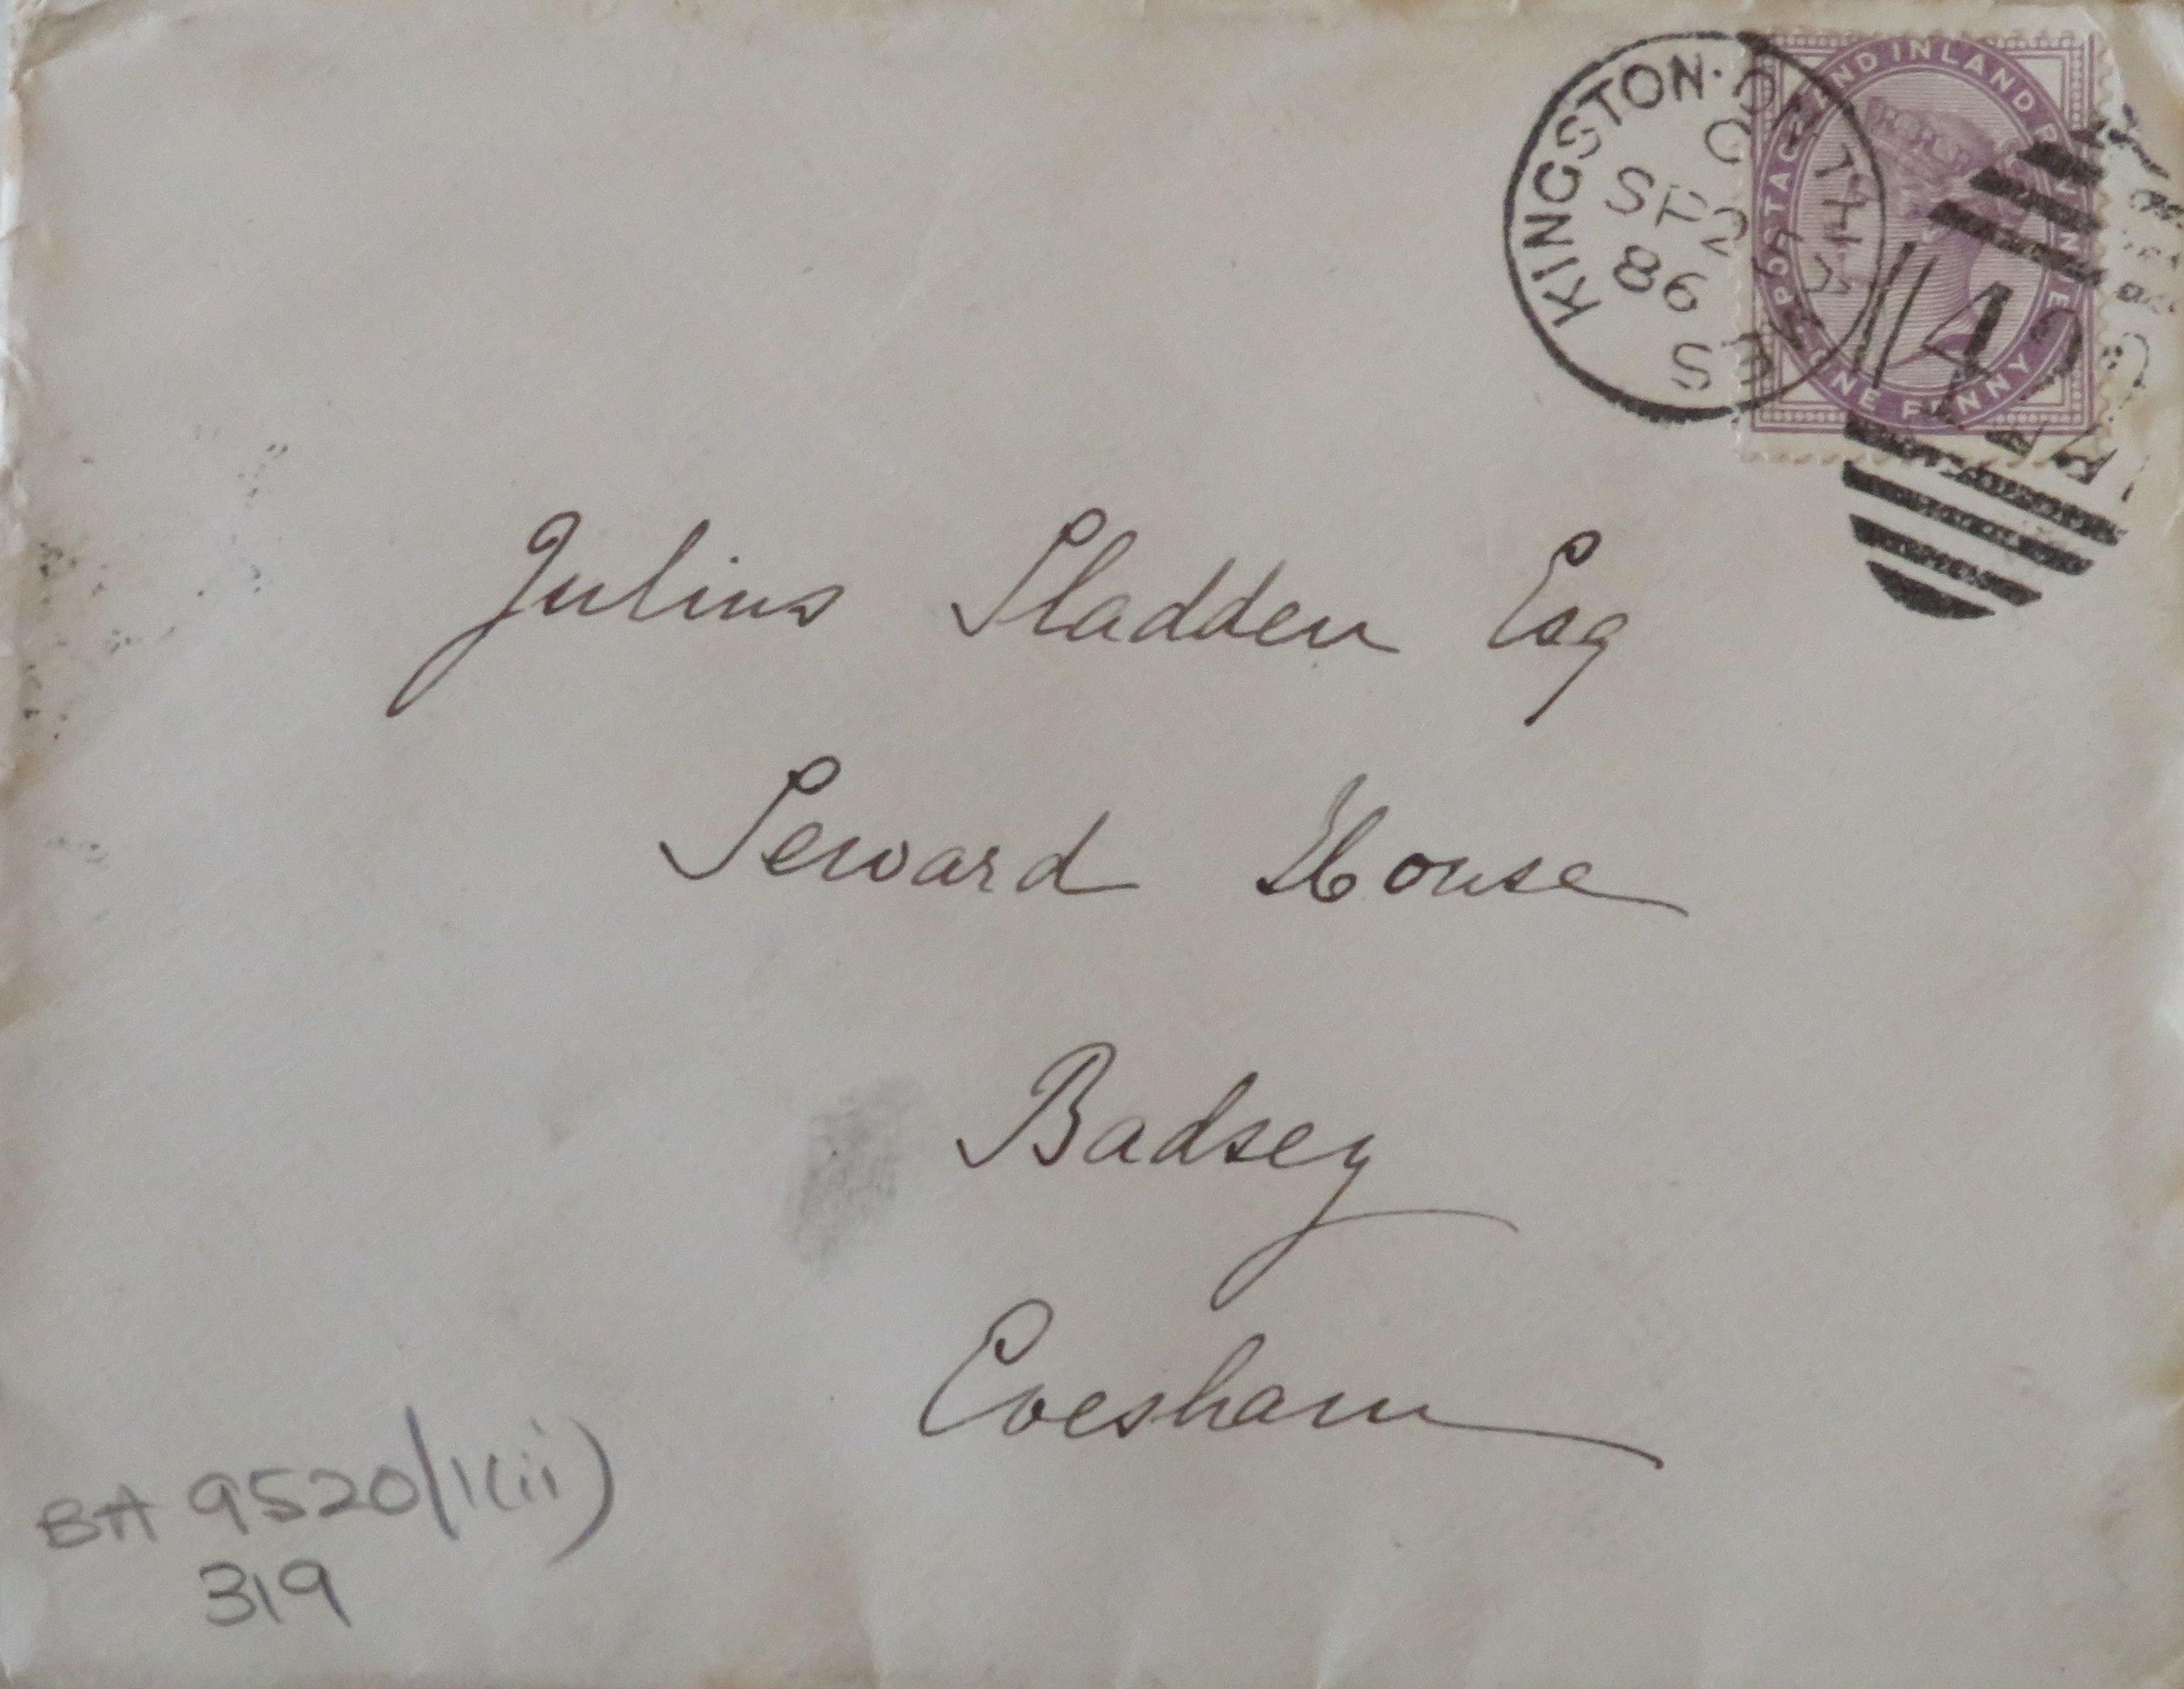 KINGSTON·ON-TH
SP2
86
S
POSTAGE AND INLAND REVENUE
ONE PENNY
Julius Sladden Esq
Seward House
Badsey
Evesham
BA 9520/1(ii)
319